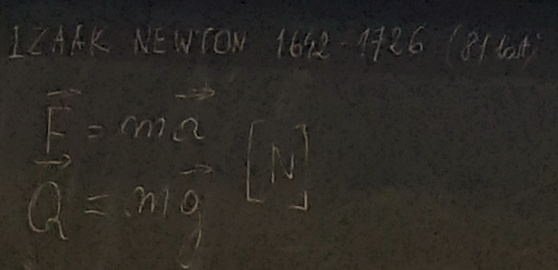 IZAAK NEWTON 1642-1726 (81 lat)
F→ = ma→
Q→ = mg→ [N]